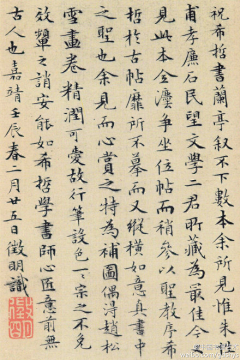 祝希哲書蘭亭叙不下數本余所見惟朱性
甫孝廉石民望文學二君所藏為最佳今
見此本全灋爭坐位帖而稍參以聖教序希
哲於古帖靡所不摹而又縱橫如意真書中
之聖也余見而心賞之特為補圖偶得趙松
雪畫卷精潤可愛故行筆設色一一宗之不免
效顰之誚安能如希哲學書師心匠意前無
古人也嘉靖壬辰春二月廿五日徵明識